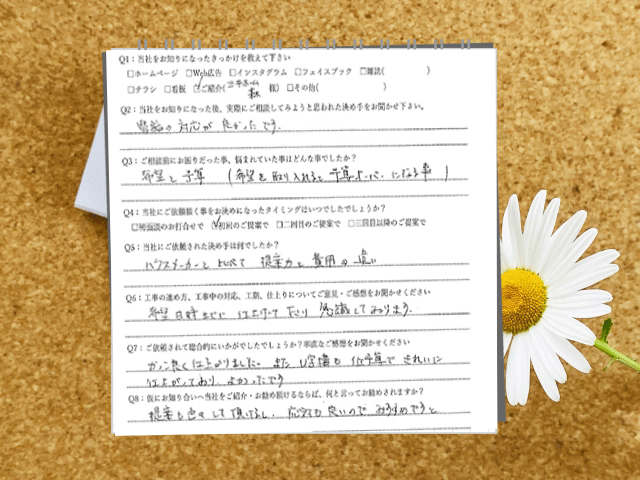 Q1：当社をお知りになったきっかけを教えて下さい
□ホームページ □Web広告 □インスタグラム □フェイスブック □雑誌( )
□チラシ □看板 ☑ご紹介( ホーム 森 様) □その他( )
Q2：当社をお知りになった後、実際にご相談してみようと思われた決め手をお聞かせ下さい。
電話の対応が良かったです.
Q3：ご相談前にお困りだった事、悩まれていた事はどんな事でしたか？
希望と予算 (希望を取り入れると予算オーバーになる事 )
Q4：当社にご依頼頂く事をお決めになったタイミングはいつでしたでしょうか？
□初面談のお打合せで ☑初回のご提案で □二回目のご提案で □三回目以降のご提案で
Q5：当社にご依頼された決め手は何でしたか？
ハウスメーカーと比べて 提案力と費用の違い
Q6：工事の進め方、工事中の対応、工期、仕上りについてご意見・ご感想をお聞かせください
希望日時までに 仕上げて下さり 感謝しております.
Q7：ご依頼されて総合的にいかがでしたでしょうか？率直なご感想をお聞かせください
かっこ良く仕上がりました。また、U字溝も低予算できれいに
仕上がっており、よかったです
Q8：仮にお知り合いへ当社をご紹介・お勧め頂けるならば、何と言ってお勧めされますか？
提案も色々して頂けるし、対応も良いので おすすめですと